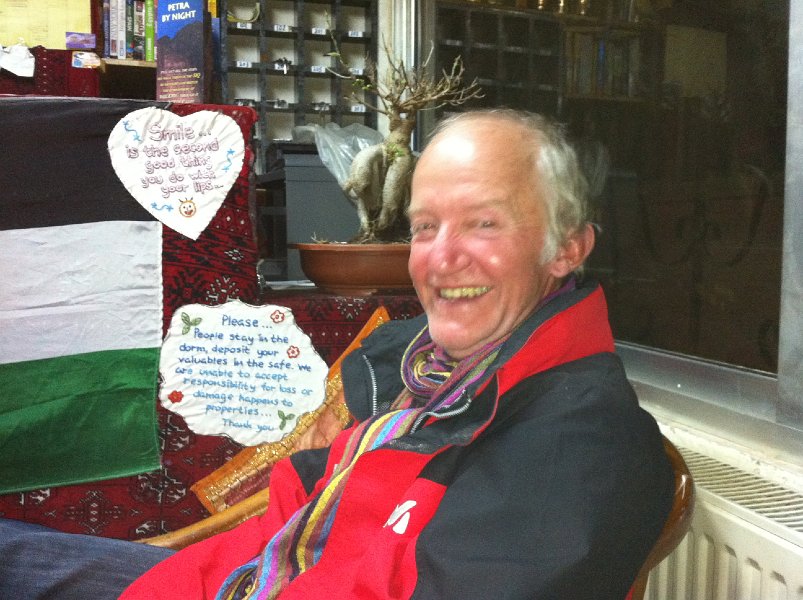 PETRA
BY NIGHT
Smile...
is the second
good thing
you do with
your lips...
Please...
People stay in the
dorm, deposit your
valuables in the safe. we
are unable to accept
responsibility for loss or
damage happens to
properties...
Thank you